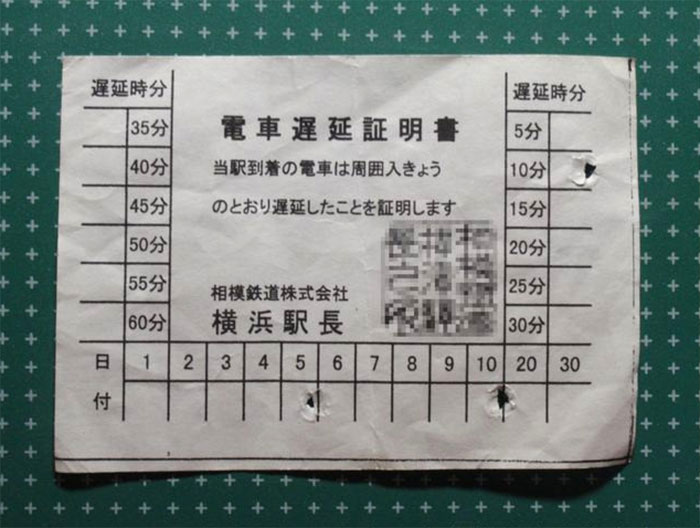 遅延時分
35分
40分
45分
50分
55分
60分
電車遅延証明書
当駅到着の電車は周囲入きょう
のとおり遅延したことを証明します
相模鉄道株式会社
横浜駅長
遅延時分
5分
10分
15分
20分
25分
30分
日付 1 2 3 4 5 6 7 8 9 10 20 30